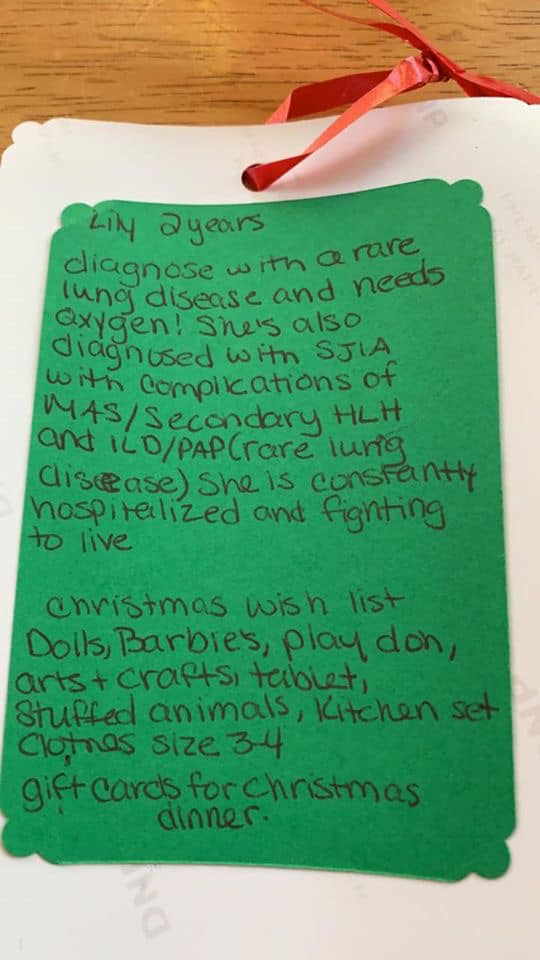 Lily 2 years
diagnose with a rare
lung disease and needs
oxygen! She's also
diagnosed with SJIA
with complications of
MAS/Secondary HLH
and ILD/PAP(rare lung
disease) She is constantly
hospitalized and fighting
to live
christmas wish list
Dolls, Barbie's, play doh,
arts + crafts, tablet,
Stuffed animals, Kitchen set
Clothes size 3-4
gift cards for Christmas
dinner.
DN